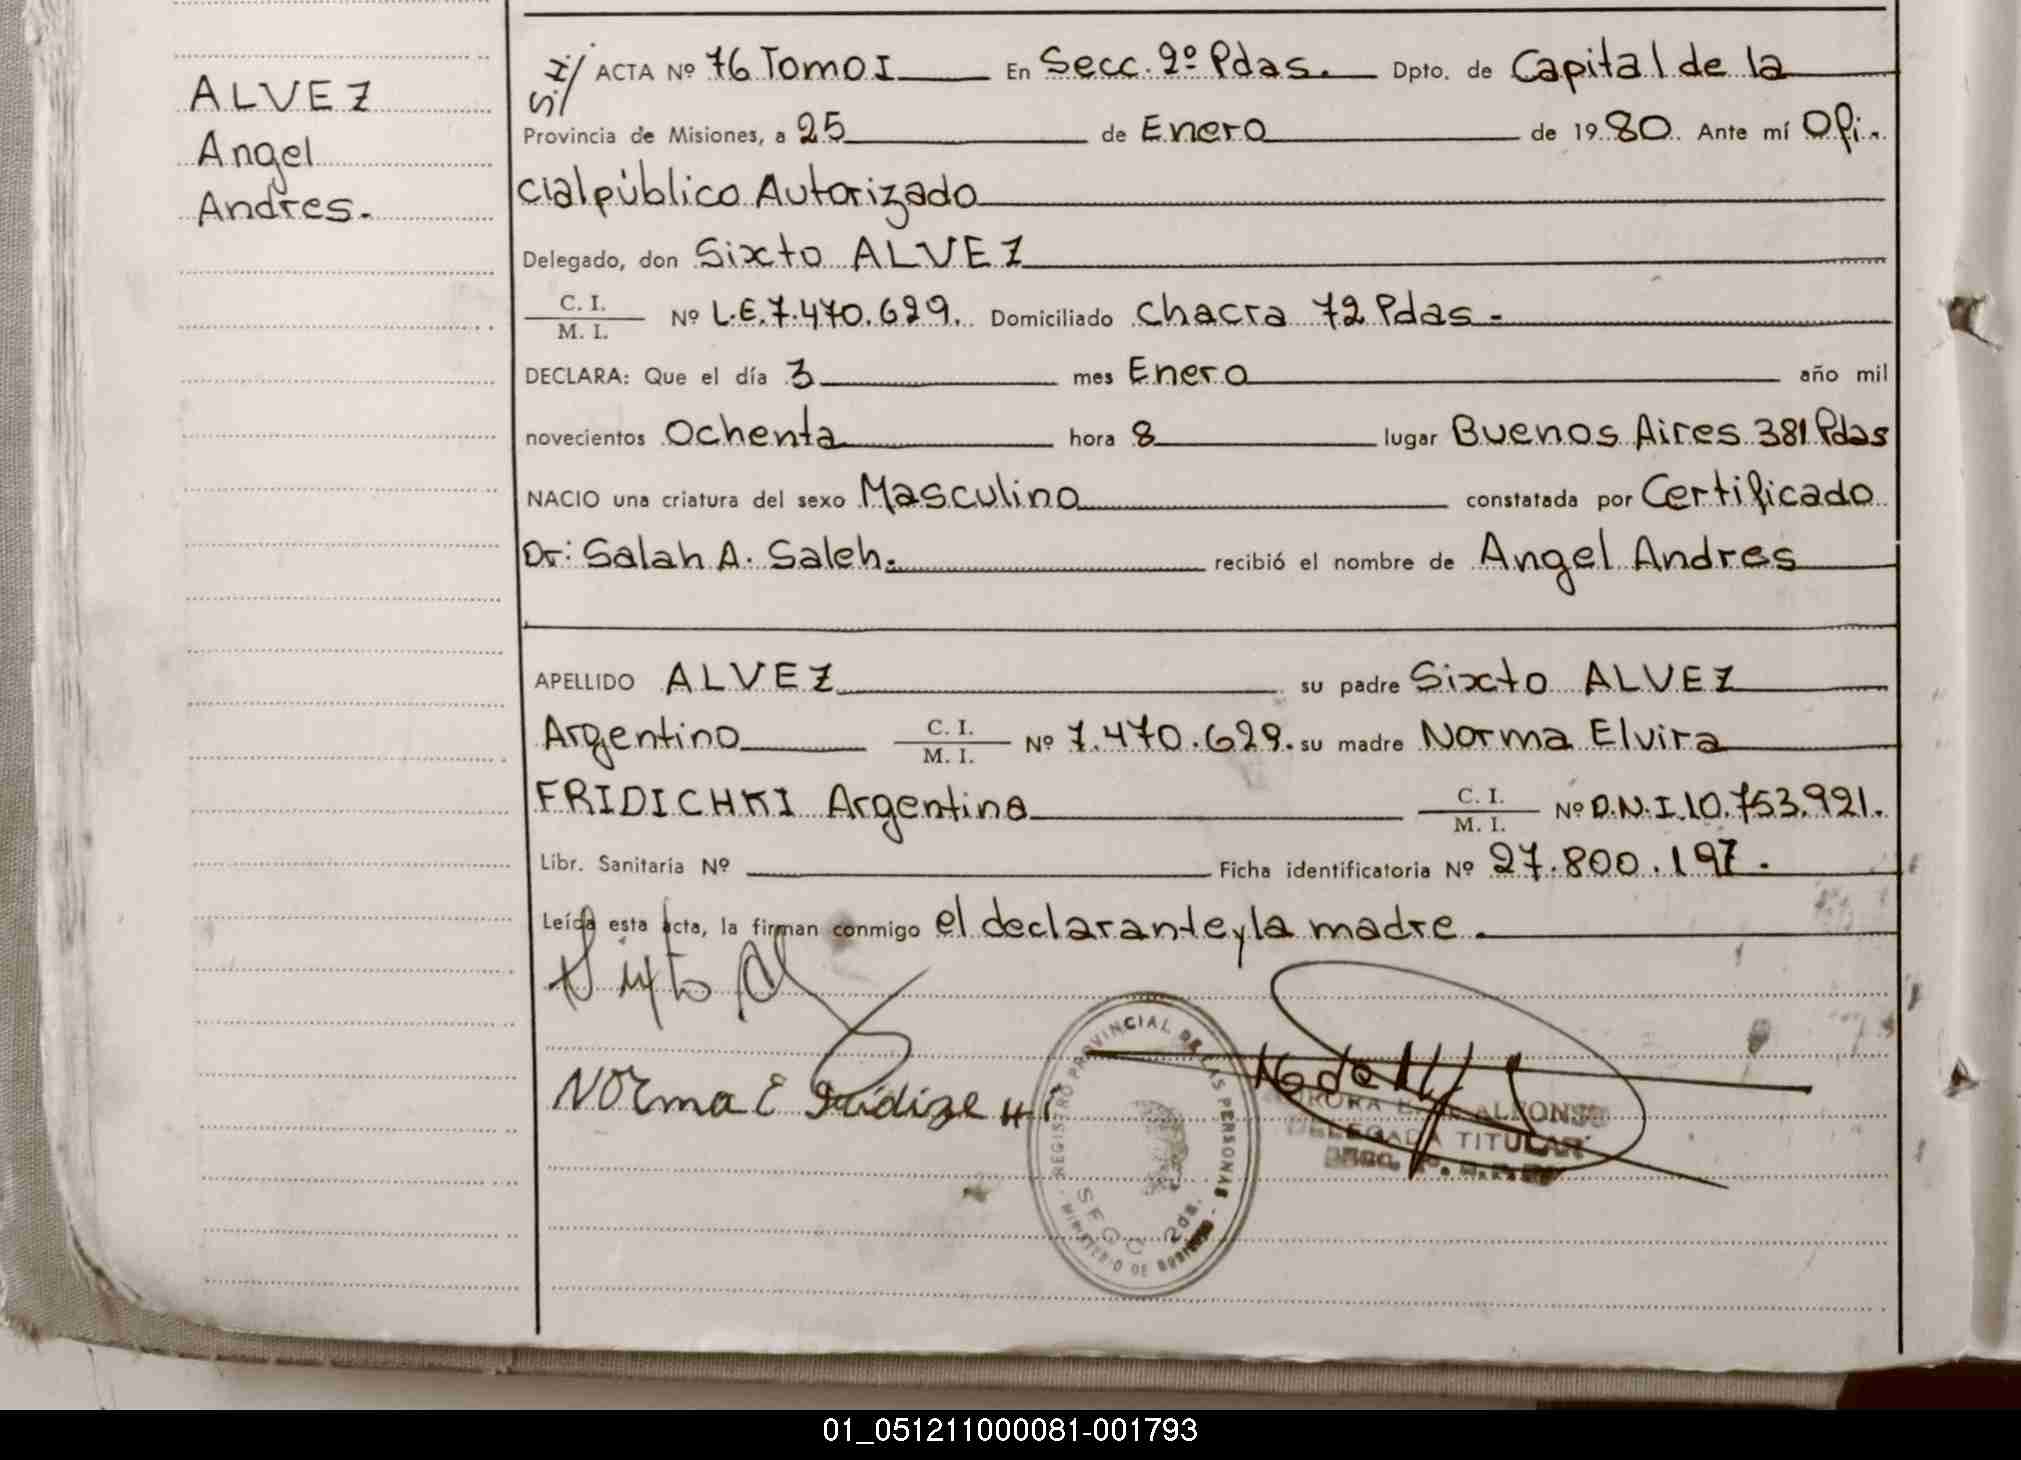 ALVEZ
Angel
Andres.
S.I/ ACTA Nº 76 Tomo I En Secc. 2º Pdas. Dpto. de Capital de la
Provincia de Misiones, a 25 de Enero de 1980. Ante mí Ofi-
cial público Autorizado
Delegado, don Sixto ALVEZ
C. I.
M. I. Nº L.E. 7.470.629. Domiciliado Chacra 72 Pdas-
DECLARA: Que el día 3 mes Enero año mil
novecientos Ochenta hora 8 lugar Buenos Aires 381 Pdas
NACIO una criatura del sexo Masculino constatada por Certificado
Dr: Salah A. Saleh. recibió el nombre de Angel Andres
APELLIDO ALVEZ su padre Sixto ALVEZ
Argentino C. I. M. I. Nº 7.470.629. su madre Norma Elvira
FRIDICHKI Argentina C. I. M. I. Nº D.N.I. 10.753.921.
Libr. Sanitaria Nº Ficha identificatoria Nº 27.800.197.
Leída esta acta, la firman conmigo el declarante y la madre.
Sixto Al
Norma E
REGISTRO PROVINCIAL DE LAS PERSONAS
SECC 2da.
MINISTERIO DE GOBIERNO
ALFONSO
DELEGADA TITULAR
01_051211000081-001793